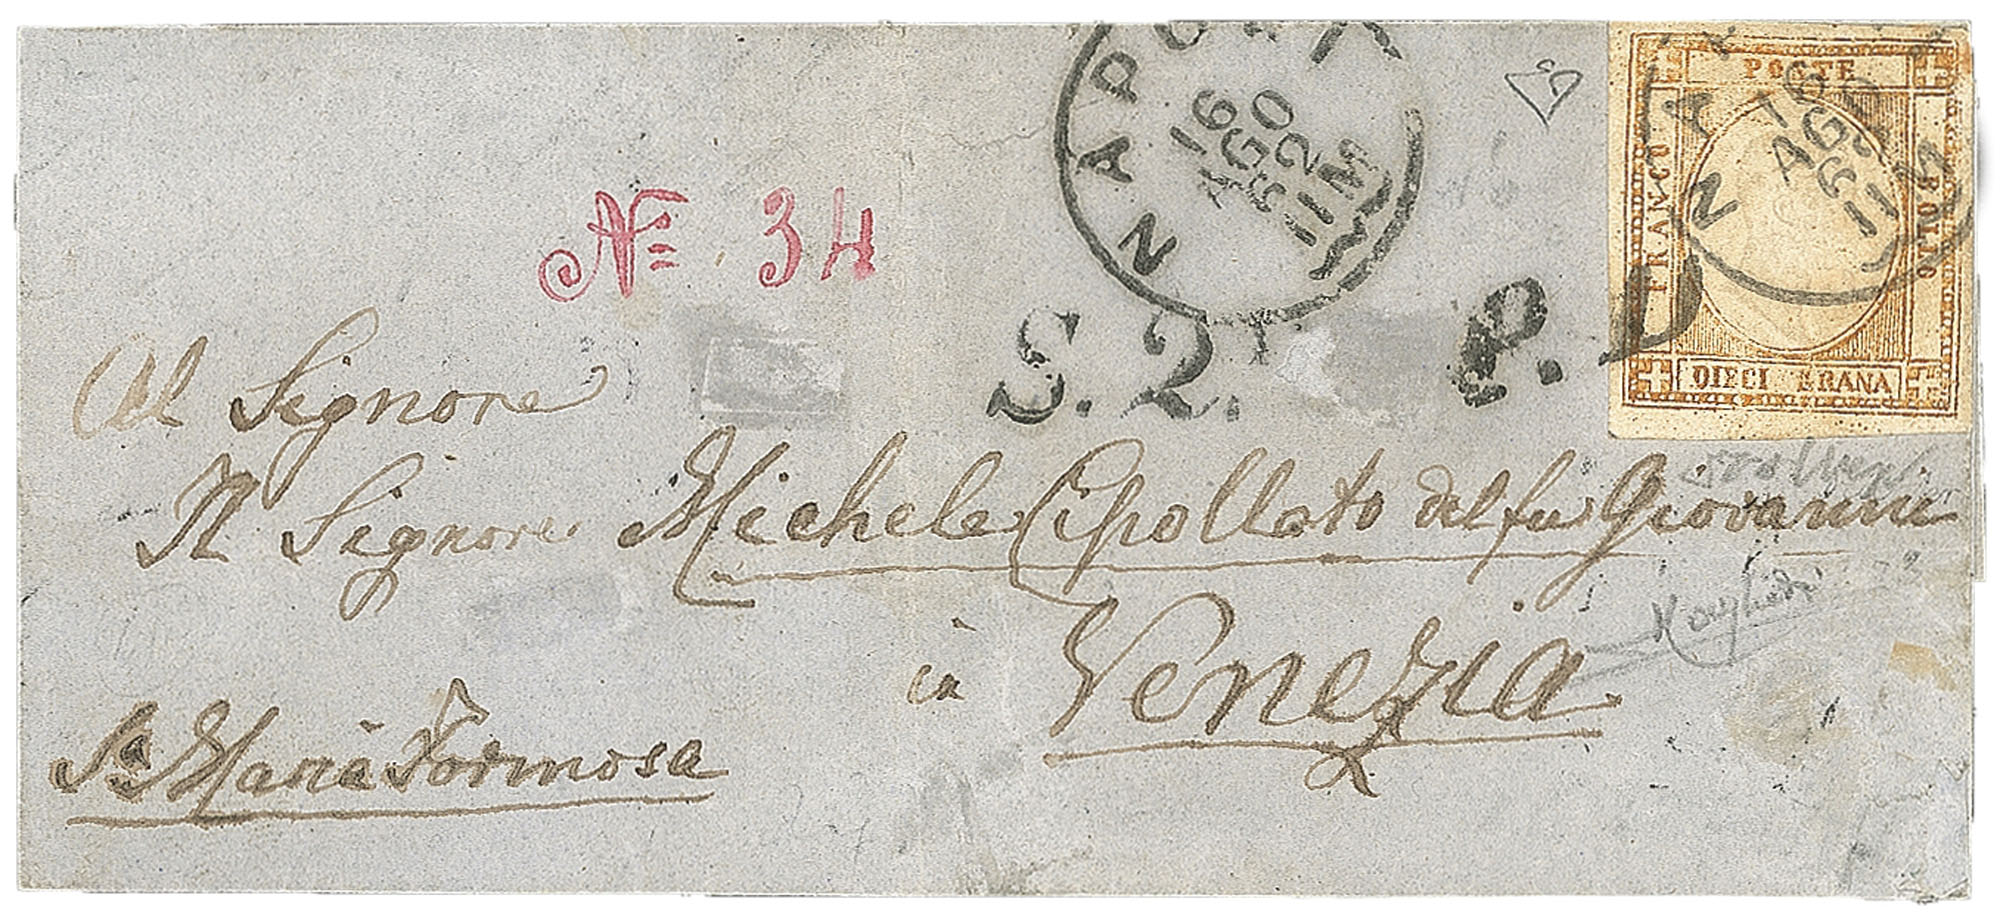 NAPOLI
16
AGO
62
11M
NA
16
AGO
6
11M
POSTE
FRANCO
BOLLO
DIECI GRANA
Nº 34
S. 2.
P. D
Al Signore
Il Signore Michele Cipollato del fu Giovanni
in Venezia
Sa Maria Formosa